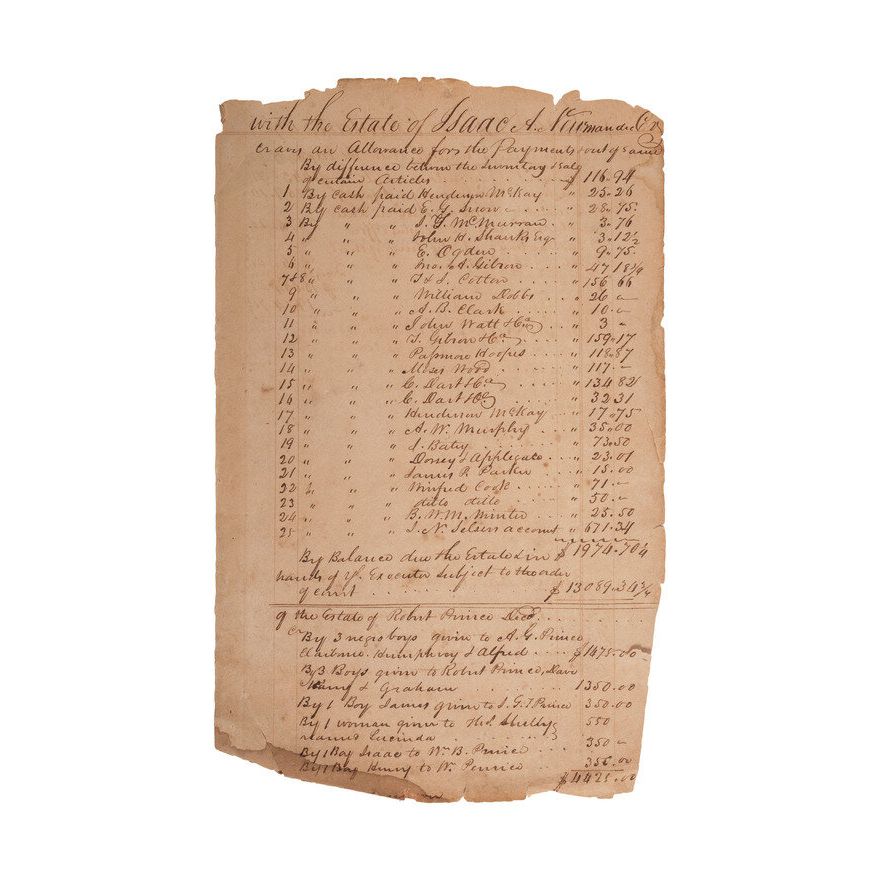 with the Estate of Isaac A. Cr
craves an Allowance for the Payments out of same
By difference between the Inventory & Sale
of certain Articles . . . . $ 116.94
1 By cash paid Henderson McKay " 25.26
2 By cash paid E. G. Snow . . . " 28.75.
3 By " " J. G. McMurran . " 3.76
4 " " " John H. Shanks Esq " 3.12½
5 " " " E. Ogden . . . . " 9.75.
6 " " " Jno. A. Gibson . . . " 47 18¾
7&8 " " " T & J. Cotton . . . . " 156 66
9 " " " William Dobbs . . . " 26 "
10 " " " A. B. Clark . . . . " 10 "
11 " " " John Watt & Co " 3 "
12 " " " T. Gibson & Co " 159.17
13 " " " Pasmore Hoopes . . . " 118.87
14 " " " Moses Wood . . . . " 117. "
15 " " " C. Dart & Co . . . " 134 82
16 " " " C. Dart & Co . . . " 32 31
17 " " " Henderson McKay " 17.75
18 " " " A. W. Murphy . . . " 35.00
19 " " " J. Baty . . . . " 73.50
20 " " " Dorsey & Applegate . . " 23.01
21 " " " James P. Parker . . . " 15.00
22 " " " Winfred Cook . . . " 71 "
23 " " " ditto ditto . . . . " 50. "
24 " " " B. W. M. Minter . . . " 25.50
25 " " " J. N. account " 671.34
By Balance due the Estate & in $ 1974.70¼
hands of ye. Executor subject to the order
of court . . . . . . $ 13089.34¾
of the Estate of Robert Prince Decd . . . .
Cr
By 3 negro boys given to A. G. Prince
Claiborne Humphrey & Alfred . . . $1475.00
By 3 Boys given to Robert Prince, Dave
& Graham . . . . 1350.00
By 1 Boy James given to J. G. T. Prince 350.00
By 1 woman given to 550
named Lucinda . . . .
By 1 Boy Isaac to Wm B. 350 "
By 1 Boy Henry to W. 350.00
$4425.00